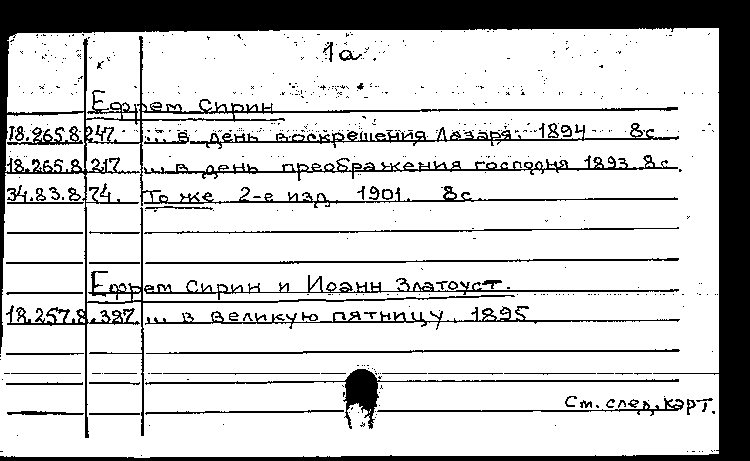 1а.
Ефрем Сирин
18.265.8.247. ... в день воскрешения Лазаря. 1894 8с
18.265.8.217 ... в день преображения господня 1893 8с.
34.83.8.74. То же 2-е изд. 1901. 8с.
Ефрем Сирин и Иоанн Златоуст.
18.257.8.387. ... в великую пятницу. 1895
См. след. карт.